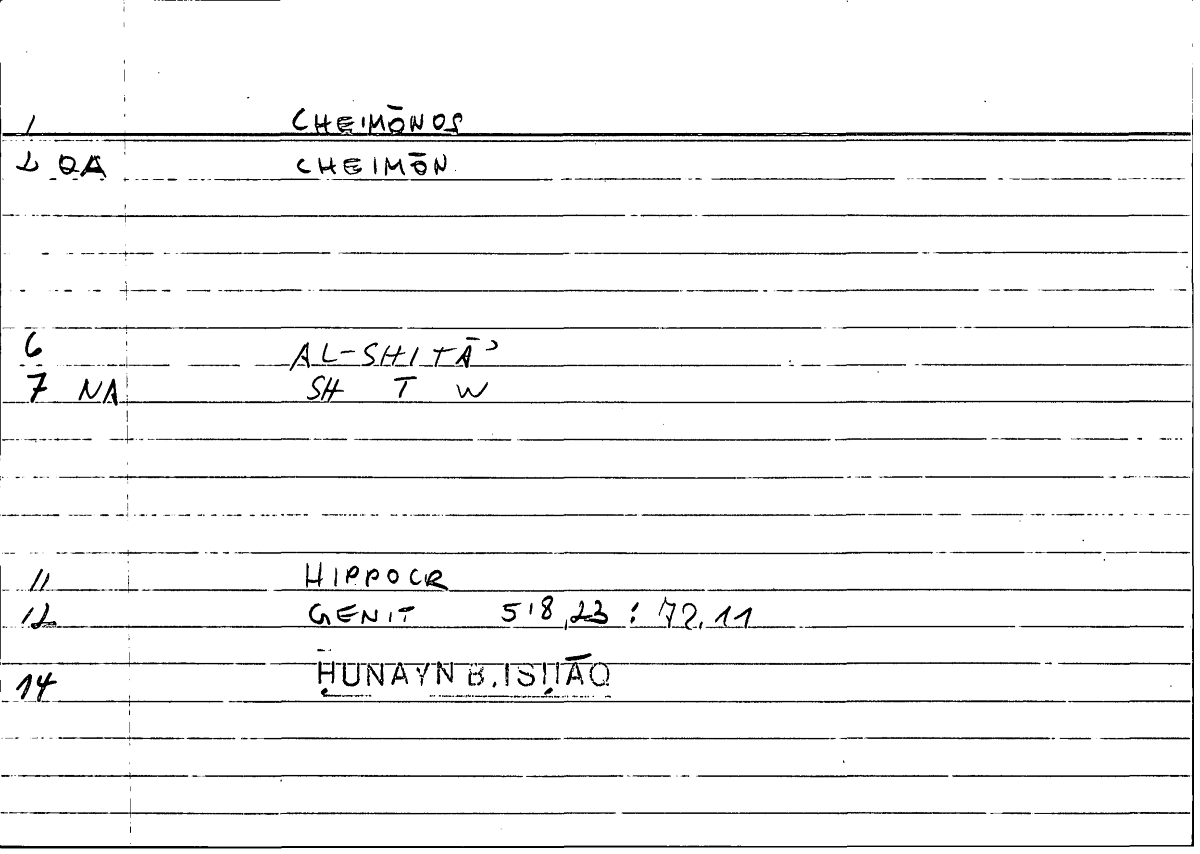 1 CHEIMŌNOS
2 QA CHEIMŌN
6 AL-SHITĀʾ
7 NA SH T W
11 HIPPOCR
12 GENIT 518,23 : 72,11
14 ḤUNAYN B. ISḤĀQ